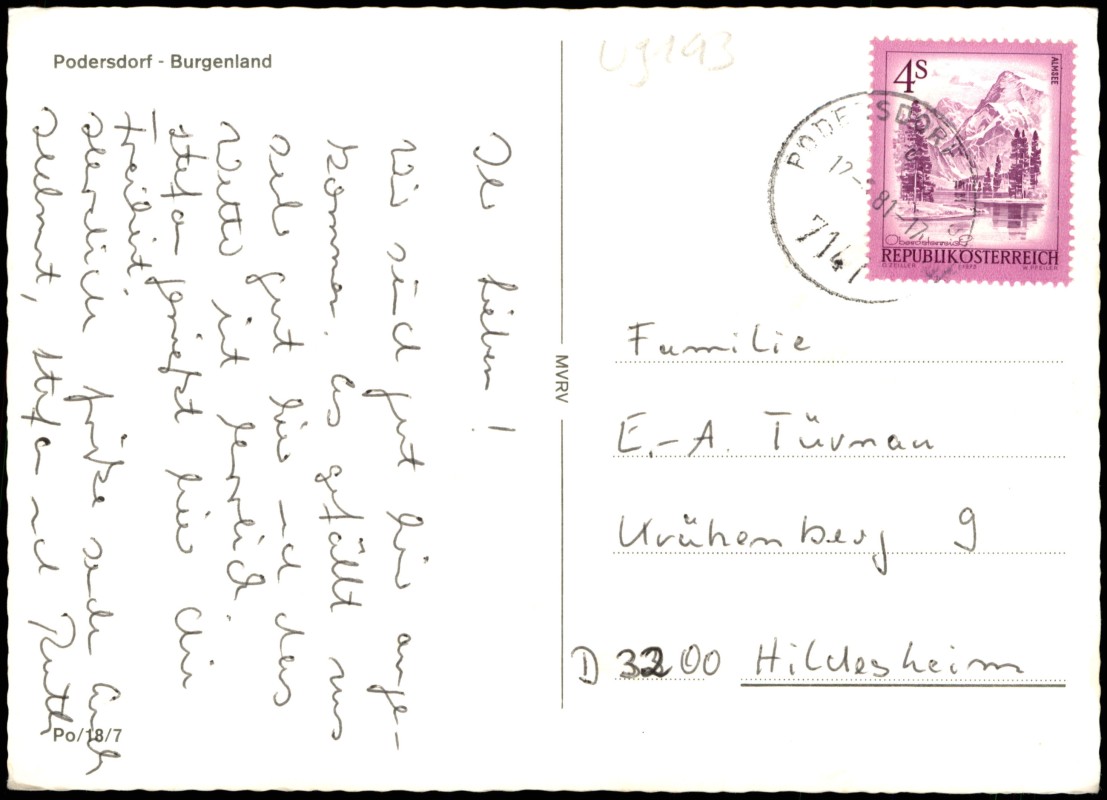 Podersdorf - Burgenland
Ihr Lieben!
Wir sind gut hier ange-
kommen. Es gefällt uns
sehr gut hier und das
Wetter ist herrlich.
Stefan genießt hier die
Freiheit.
Herzliche Grüße senden Euch
Helmut, Stefan und Ruth
Po/18/7
MVRV
Ug193
4S
ALMSEE
Oberösterreich
REPUBLIK ÖSTERREICH
O. ZEILLER 1973 W. PFEILER
PODERSDORF
81-17
7141
Familie
E.-A. Türnau
Krähenberg 9
D 3200 Hildesheim